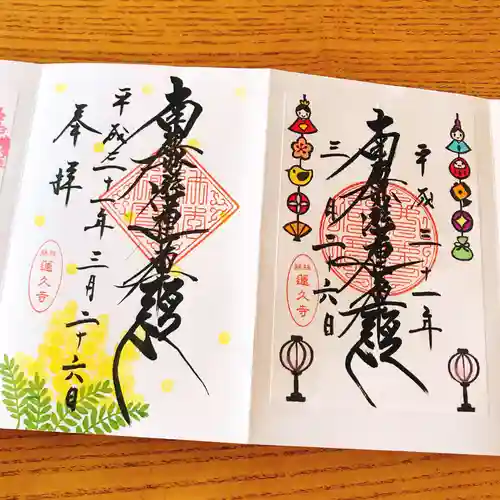 平成三十一年三月二十六日
奉拝
南無妙法蓮華経
蓮久寺
平成三十一年
三月二六日
南無妙法蓮華経
蓮久寺